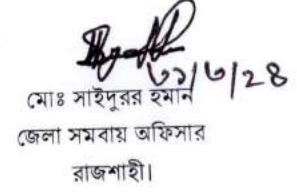 ৩১/৩/২৪
মোঃ সাইদুরর হমান
জেলা সমবায় অফিসার
রাজশাহী।